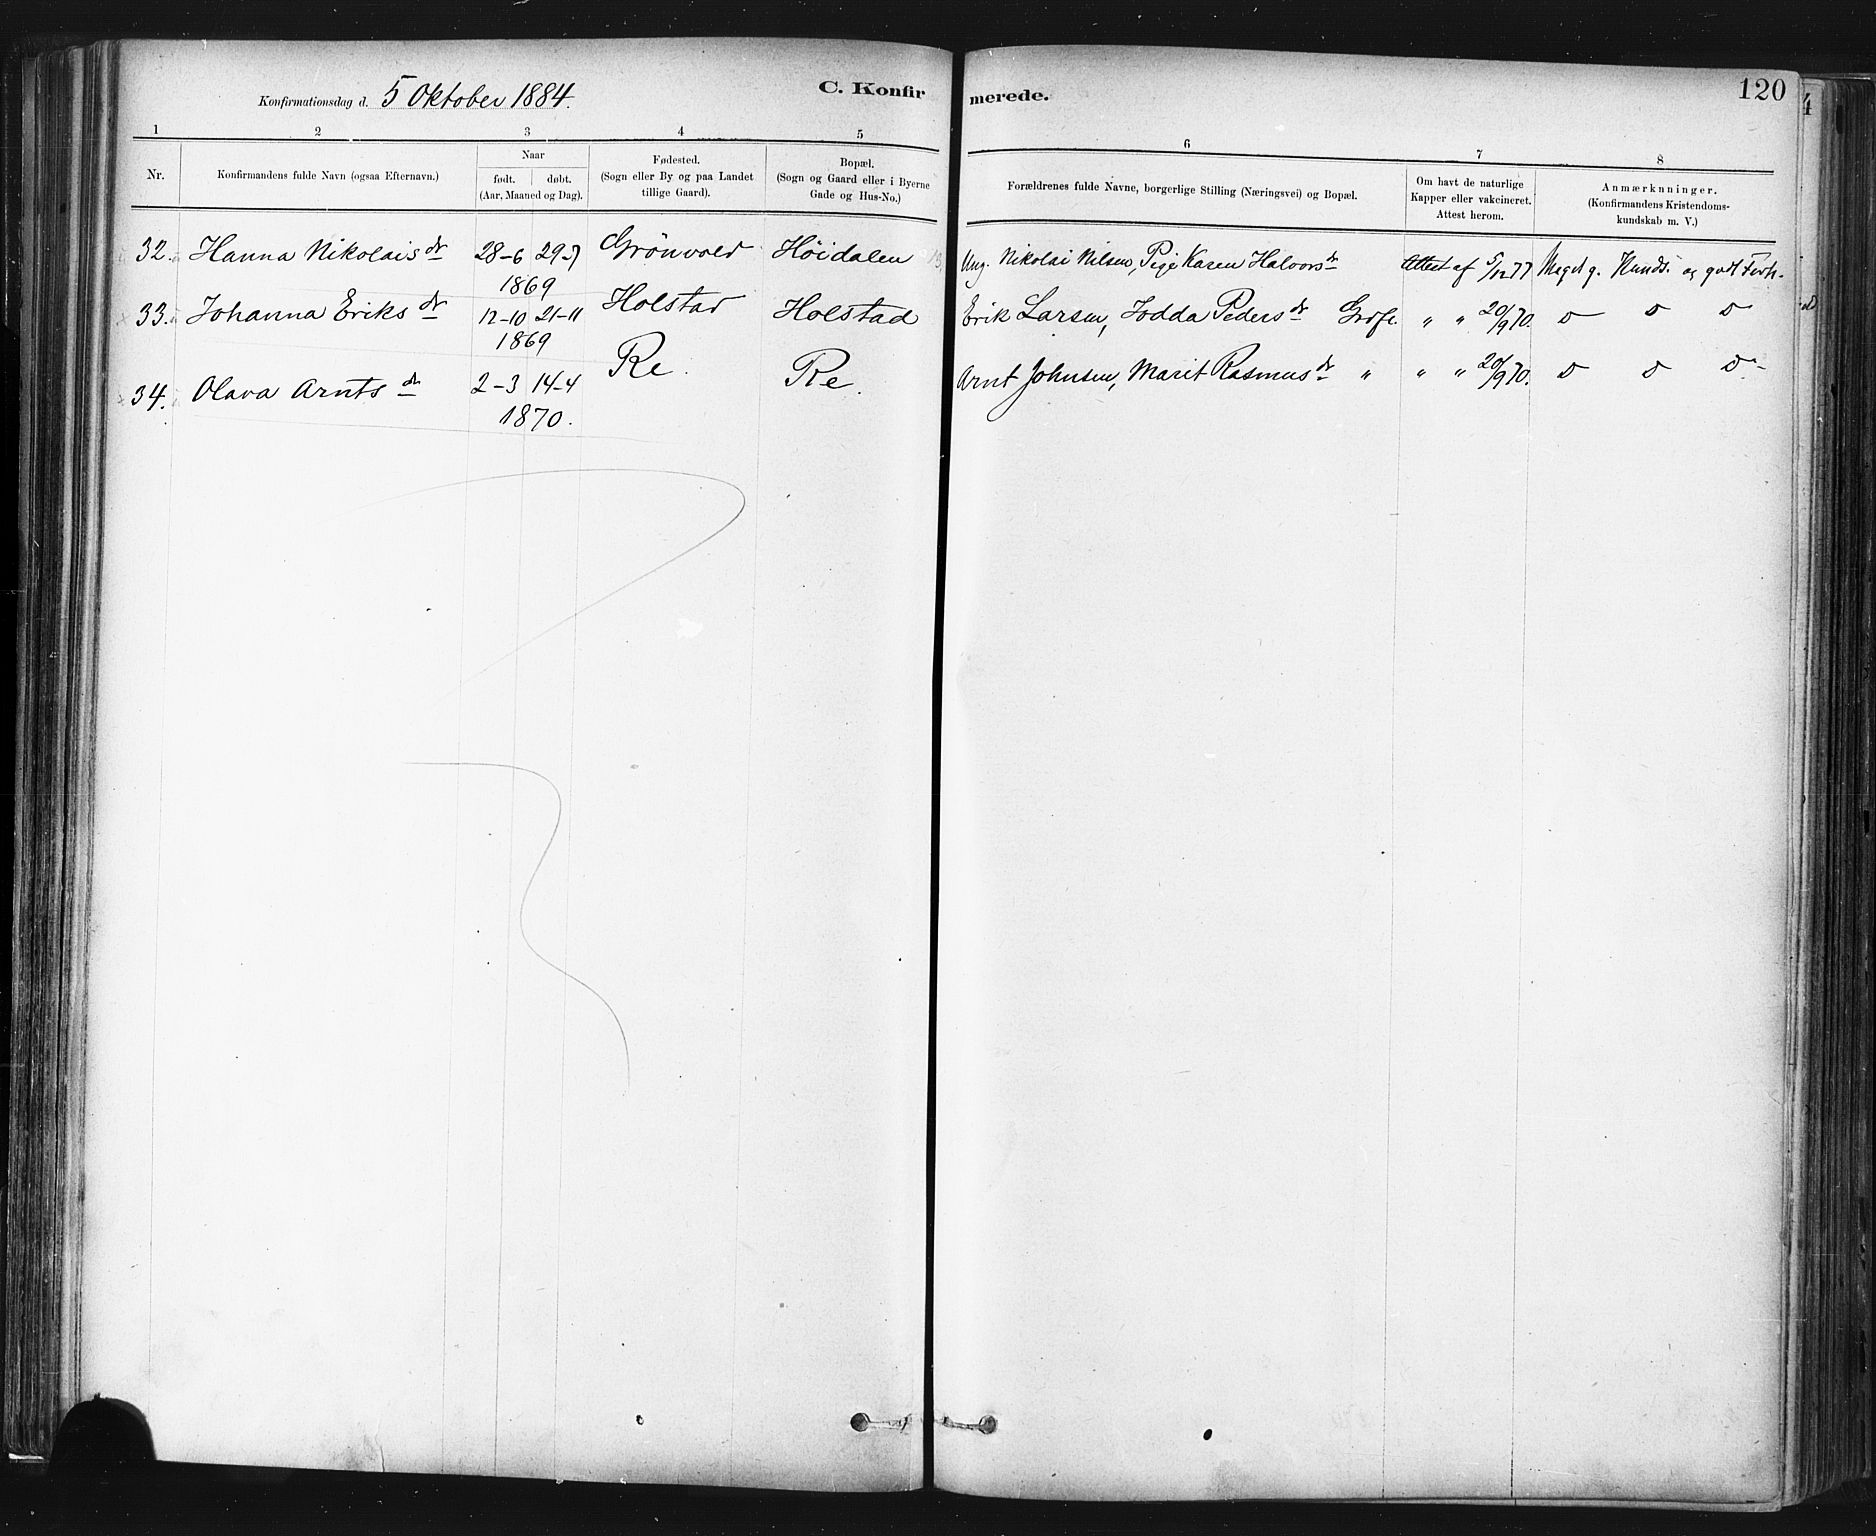 Konfirmationsdag d. 5 Oktober 1884.
C. Konfirmerede.
120
1 2 3 4 5 6 7 8
Nr.
Konfirmandens fulde Navn (ogsaa Efternavn.)
Naar
født. døbt.
(Aar, Maaned og Dag).
Fødested.
(Sogn eller By og paa Landet
tillige Gaard).
Bopæl.
(Sogn og Gaard eller i Byerne
Gade og Hus-No.)
Forældrenes fulde Navne, borgerlige Stilling (Næringsvei) og Bopæl.
Om havt de naturlige
Kapper eller vakcineret.
Attest herom.
Anmærknninger.
(Konfirmandens Kristendoms-
kundskab m. V.)
32. Hanna Nikolais dr 28-6 29-7 1869 Grönvold Höidalen Ung. Nikolai Nilsen, Pige Karen Halvors dr Attest af 5/12 77 Meget g. Kunds. og godt Forh.
33. Johanna Eriks dr 12-10 21-11 1869 Holstad Holstad Erik Larsen, Jodda Peders dr Grdfl. " " 20/9 70. D D D
34. Olava Arnts dr 2-3 14-4 1870. Re. Re. Arnt Johnsen, Marit Rasmus dr " " " 20/9 70. D D D